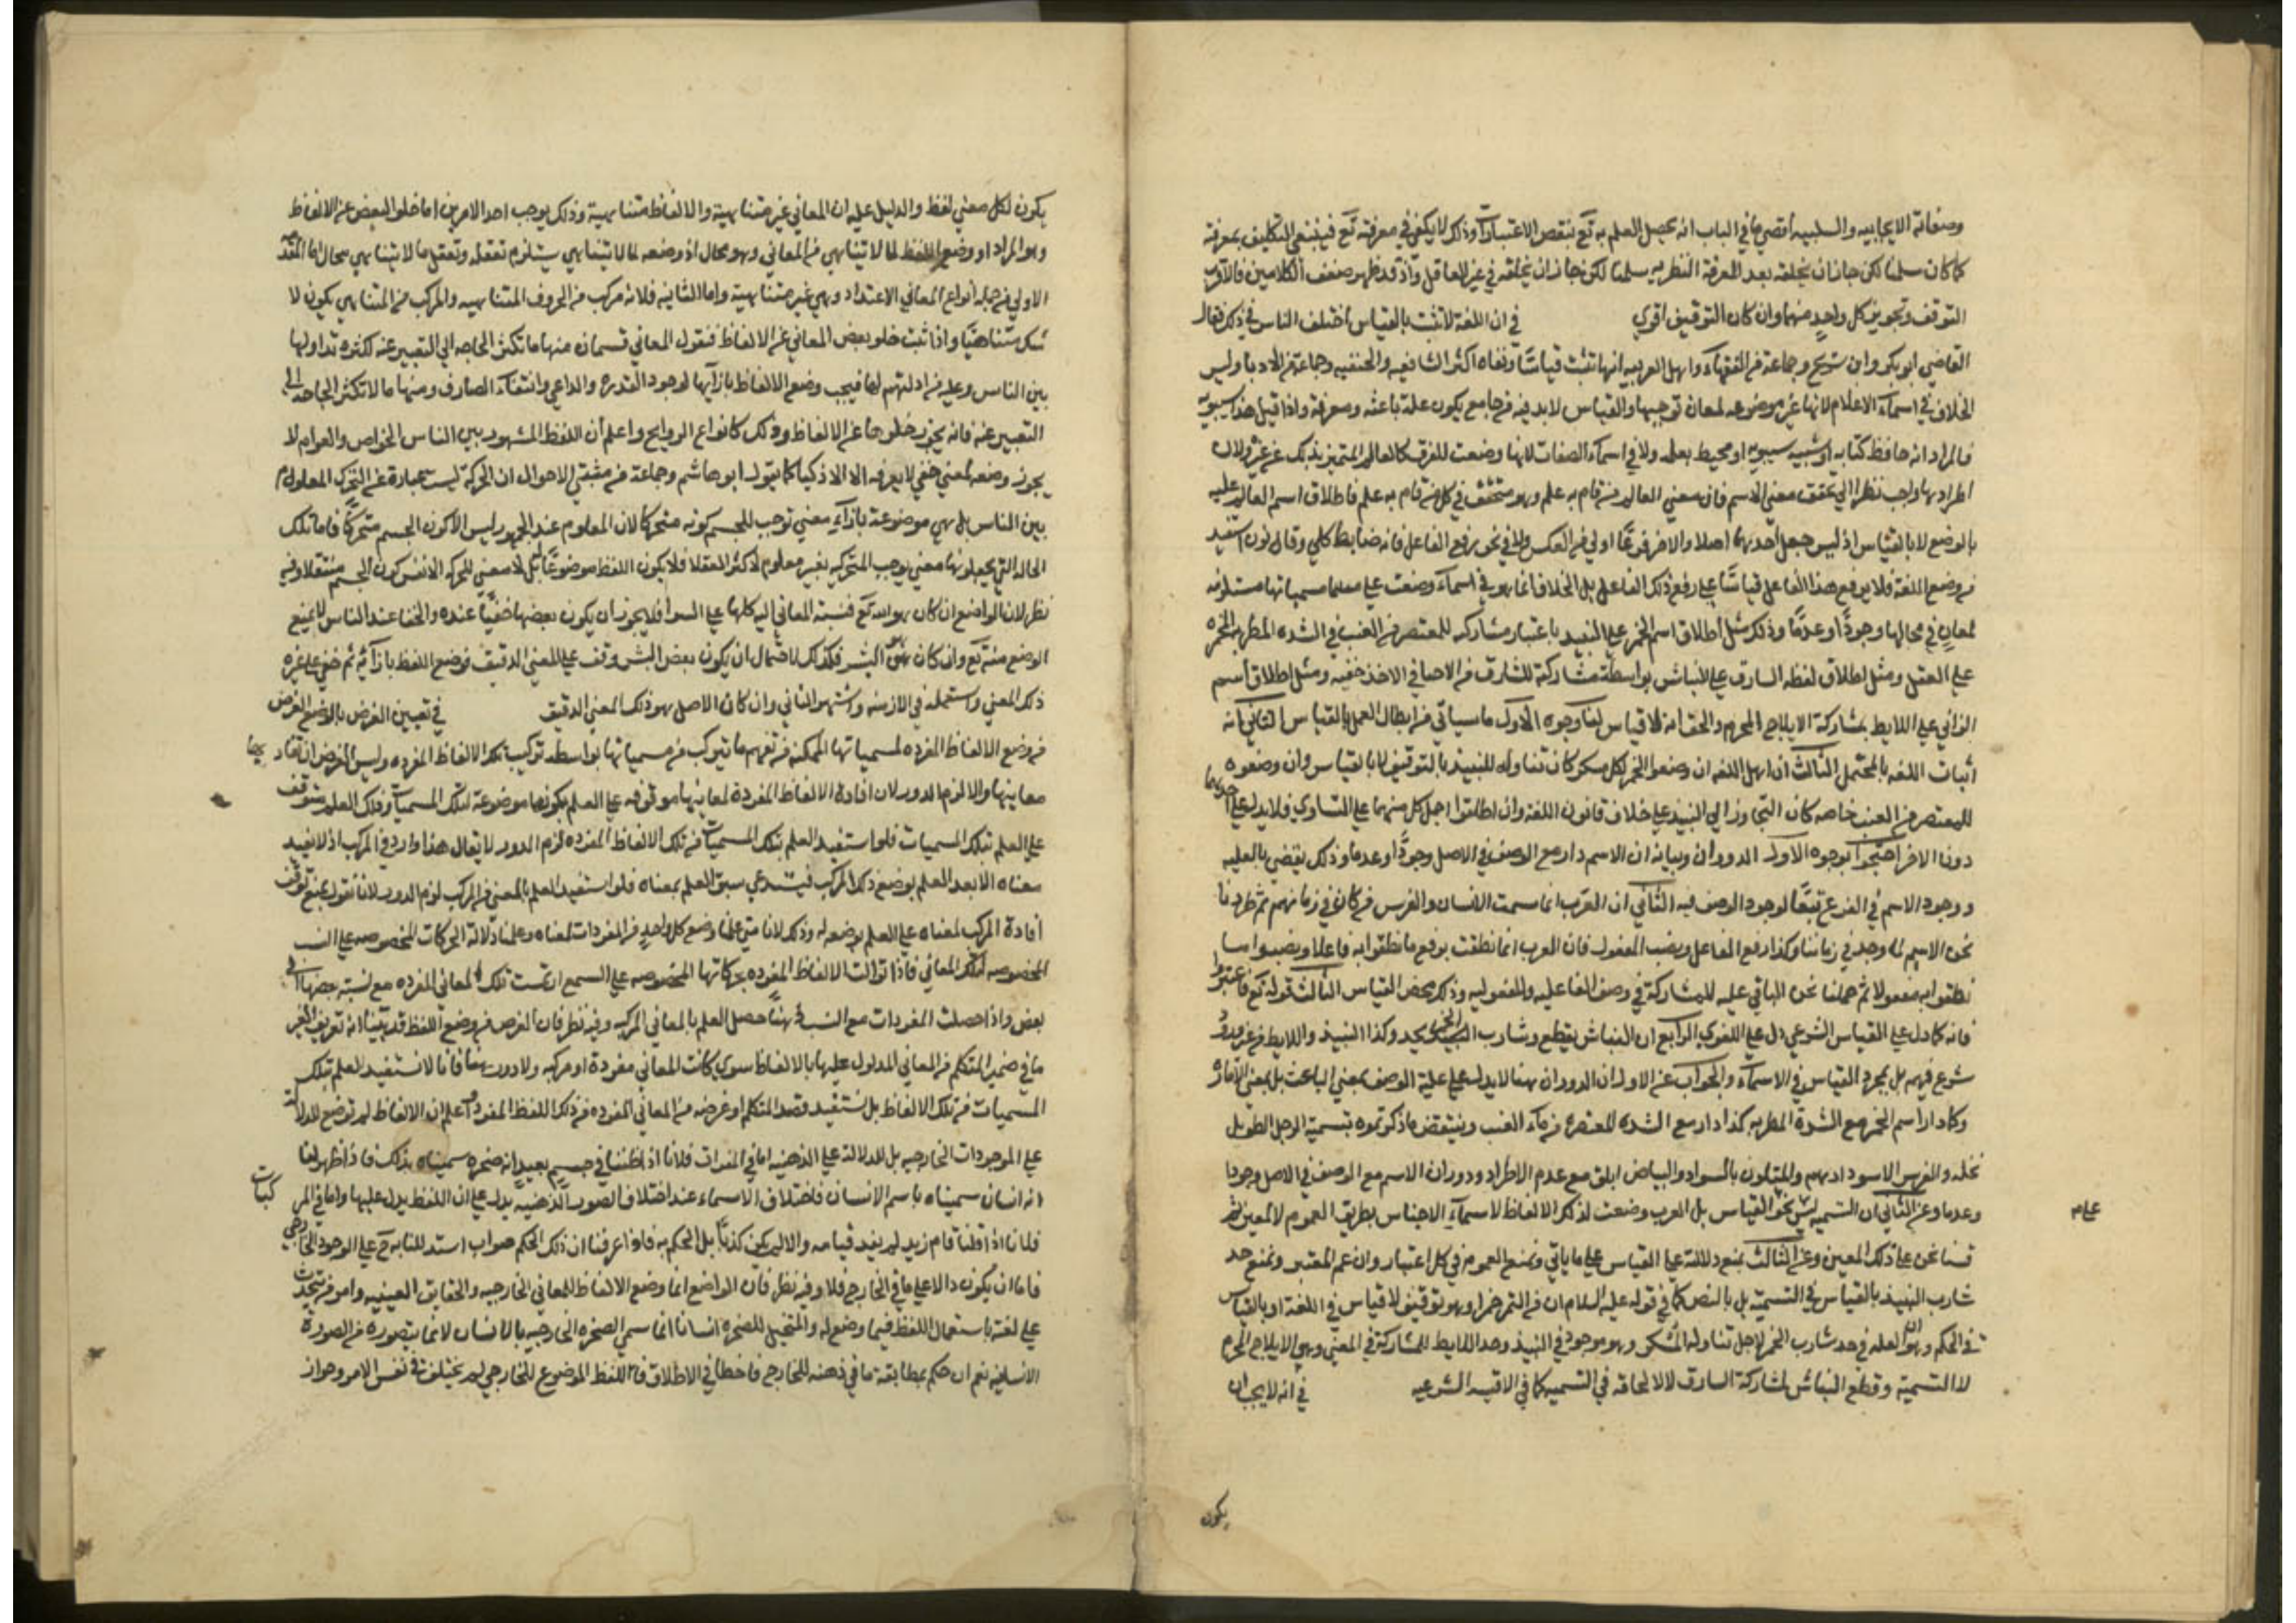 وصفاته الايجابيه والسلبيه اقصي ما في الباب انه يحصل العلم به تع بنقص الاعتبارات وذلك لا يكفي في معرفته تع فينبغي التكليف بمعرفته
كما كان سلمنا لكن جاز ان يخلقه بعد المعرفة النظريه سلمنا لكن جاز ان يخلقه في غير العاقل واذ قد ظهر ضعف الكلامين فالاقرب
التوقف وتجويز كل واحد منهما وان كان التوقيف اقوي في ان اللغة لا تثبت بالقياس اختلف الناس في ذلك فقال
القاضي ابو بكر وابن شريح وجماعة من الفقهاء واهل العربيه انها تثبت قياسا ونفاه اكثر الشافعيه والحنفيه وجماعة من الادبا وليس
الخلاف في اسماء الاعلام لانها غير موضوعه لمعان توجبها والقياس لا بد فيه من جامع يكون علة باعثه ومعرفة واذا قيل هذا سيبويه
فالمراد انه حافظ كتابه او شبيه سيبويه او محيط بعلمه ولا في اسماء الصفات لانها وضعت للفرق كالعالم المتميز بذلك عن غيره ولان
اطرادها واجب نظرا الي تحقق معني الاسم فان معني العالم من قام به علم وهو متحقق في كل من قام به علم فاطلاق اسم العالم عليه
بالوضع لا بالقياس اذ ليس جعل احدهما اصلا والاخر فرعا اولي من العكس ولا في نحو رفع الفاعل فانه ضابط كلي وقانون استفيد
من وضع اللغة فلا يرفع هذا الفاعل قياسا علي رفع ذلك الفاعل بل الخلاف انما هو في اسماء وضعت علي مسمياتها مستلزمه
لمعان في محالها وجودا وعدما وذلك مثل اطلاق اسم الخمر علي النبيد باعتبار مشاركه للمعتصر من العنب في الشده المطربه المخمره
علي العقل ومثل اطلاق لفظه السارق علي النباش بواسطة مشاركة للسارق من الاحيا في الاخذ خفيه ومثل اطلاق اسم
الزاني علي اللايط بمشاركة الايلاج المحرم والحق انه لا قياس لنا وجوه الاول ما سياتي من ابطال العمل بالقياس الثاني انه
اثبات اللغه بالمحتمل الثالث ان اهل اللغه ان وضعوا الخمر لكل مسكر كان تناوله للنبيذ بالتوقيف لا بالقياس وان وضعوه
للمعتصر من العنب خاصه كان التجاوز الي النبيذ علي خلاف قانون اللغة وان اطلقوا احتمل كل منهما علي التساوي فلا يدل علي احدهما
دون الاخر احتجوا بوجوه الاول الدوران وبيانه ان الاسم دار مع الوصف في الاصل وجودا وعدما وذلك يقتضي بالعليه
ووجود الاسم في الفرع تبعا لوجود الوصف فيه الثاني ان العرب انما سمت الانسان والفرس من كان في زمانهم ثم طردنا
نحن الاسم وجد في زماننا وكذا رفع الفاعل ونصب المفعول فان العرب انما نطقت برفع ما نطقوا به فاعلا ونصبوا ما
نطقوا به مفعولا ثم حملنا نحن الباقي عليه للمشاركة في وصف الفاعليه والمفعوليه وذلك محض القياس الثالث قوله تع فاعتبروا
فانه كما دل علي القياس الشرعي دل علي اللغوي الرابع ان النباش يقطع وشارب الخمر يحد وكذا النبيذ واللايط من غير ورود
شرع فيهم بل بمجرد القياس في الاسماء والجواب عن الاول ان الدوران هنا لا يدل علي علية الوصف بمعني الباعث بل بمعني الاماره
وكما دار اسم الخمر مع الشدة المطربه كذا دار مع الشده المعتصره من ماء العنب وينتقض ما ذكرتموه بتسمية الرجل الطويل
نخله والفرس الاسود ادهم والمتلون بالسواد والبياض ابلق مع عدم الاطراد ودوران الاسم مع الوصف في الاصل وجودا
وعدما وعن الثاني ان التسميه ليس بنحو القياس بل العرب وضعت لذلك الالفاظ لاسماء الاجناس بطريق العموم لا لمعين ثم
قسنا نحن علي ذلك المعين وعن الثالث بمنع دلالته علي القياس علي ما ياتي ونمنع العموم في كل اعتبار وان عم المعتبر ونمنع حد
شارب النبيذ بالقياس في التسمية بل بالنص كما في قوله عليه السلام ان من التمر خمرا وهو توقيف لا قياس في اللغة او بالقياس
في الحكم وهو ان العله في حد شارب الخمر لاجل تناوله المسكر وهو موجود في النبيذ وحد اللايط للمشاركة في المعني وهو الايلاج المحرم
لا التسمية وقطع النباش لمشاركة السارق لا لالحاقه في التسميه كما في الاقيسه الشرعيه في انه لا يجب ان
يكون
يكون لكل معني لفظ والدليل عليه ان المعاني غير متناهية والالفاظ متناهية وذلك يوجب احد الامرين اما خلو البعض عن الالفاظ
وهو المراد او وضع اللفظ لما لا يتناهي من المعاني وهو محال اذ وضعه لما لا يتناهي يستلزم تعقله وتعقل ما لا يتناهي محال اما المقدمه
الاولي فمن جمله انواع المعاني الاعتداد وهي غير متناهية واما الثانيه فلانه مركب من الحروف المتناهيه والمركب من المتناهي يكون لا
شك متناهيا واذا ثبت خلو بعض المعاني عن الالفاظ فنقول المعاني قسمان منها ما تكثر الحاجه الي التعبير عنه لكثره تداولها
بين الناس فيجب وضع الالفاظ بازايها لوجود القدره والداعي وانتفاء الصارف ومنها ما لا تكثر الحاجه الي
التعبير عنه فانه يجوز خلوها عن الالفاظ وذلك كانواع الروايح واعلم ان اللفظ المشهور بين الناس الخواص والعوام لا
يجوز وضعه لمعني خفي لا يعرفه الا الاذكيا كما يقول ابو هاشم وجماعة من مثبتي الاحوال ان الحركة ليست عبارة عن التحرك المعلوم
بين الناس بل هي موضوعة بازاء معني توجب للجسم كونه متحركا لان المعلوم عند الجمهور ليس الا كون الجسم متحركا فاما تلك
الحاله التي يجعلونها معني يوجب المتحركيه فغير معلوم لاكثر العقلا فلا يكون اللفظ موضوعا له بل لا معني للحركه الا نفس كون الجسم منتقلا وفيه
نظر لان الواضع ان كان هو الله تع فنسبة المعاني اليه كلها علي السوا فلا يجوز ان يكون بعضها خفيا عنده والخفا عند الناس لا يمنع
الوضع منه تع وان كان هو البشر فكذلك لاحتمال ان يكون بعض البشر وقف علي المعني الدقيق فوضع اللفظ بازائه ثم خفي علي غيره
ذلك المعني واستعمله في الازمنه واشتهر الثاني وان كان الاصل هو ذلك المعني الدقيق في تعيين الغرض بالوضع الغرض
من وضع الالفاظ المفرده لمسمياتها الممكنه من تفهم ما يتركب من مسمياتها بواسطه تركيب تلك الالفاظ المفرده وليس الغرض ان تفاد بها
معانيها والا لزم الدور لان افادة الالفاظ المفردة لمعانيها موقوفه علي العلم بكونها موضوعة لتلك المسميات وذلك العلم متوقف
علي العلم بتلك المسميات فلو استفيد العلم بتلك المسميات من تلك الالفاظ المفرده لزم الدور لا يقال هذا وارد في المركب اذ لا يفيد
معناه الا بعد العلم بوضع ذلك المركب فيستدعي سبق العلم بمعناه فلو استفيد العلم بالمعني من المركب لزم الدور لانا نقول بمنع توقف
افادة المركب لمعناه علي العلم بوضعه له وذلك لانا متي علمنا وضع كل واحد من المفردات لمعناه وعلمنا دلالة الحركات المخصوصه علي النسب
المخصوصه لتلك المعاني فاذا توالت الالفاظ المفرده بحركاتها المخصوصه علي السمع ارتسمت تلك المعاني المفرده مع نسبة بعضها الي
بعض واذا حصلت المفردات مع النسب ذهنا حصل العلم بالمعاني المركبه وفيه نظر فان الغرض من وضع اللفظ قد بينا انه تعريف الغير
ما في ضمير المتكلم من المعاني المدلول عليها بالالفاظ سوي كانت المعاني مفردة او مركبه ولا دور هنا فانا لا نستفيد العلم بتلك
المسميات من تلك الالفاظ بل نستفيد قصد المتكلم او غرضه من المعاني المفرده من ذلك اللفظ المفرد واعلم ان الالفاظ لم توضع للدلالة
علي الموجودات الخارجيه بل للدلالة علي الذهنيه اما في المفردات فلانا اذا ظننا في جسم بعيد انه صخره سميناه بذلك فاذا ظهر لنا
انه انسان سميناه باسم الانسان فاختلاف الاسماء عند اختلاف الصور الذهنيه يدل علي ان اللفظ يدل عليها واما في المركبات
فلانا اذا قلنا قام زيد لم يفد قيامه والا لم يكن كذبا بل الحكم به فاذا عرفنا ان ذلك الحكم صواب استدللنا به ح علي الوجود الخارجي
فاما ان يكون دالا علي ما في الخارج فلا وفيه نظر فان الواضع انما وضع الالفاظ للمعاني الخارجيه والحقايق العينيه وامر من يتحدث
علي لغته باستعمال اللفظ فيما وضع له والمتخيل للصخره انسانا انما سمي الصخره الخارجيه بالانسان لانه ما يتصوره من الصورة
الانسانيه نعم ان حكم بمطابقة ما في ذهنه للخارج فاخطا في الاطلاق فاللفظ الموضوع للخارجي لم يختلف في نفس الامر وجواز